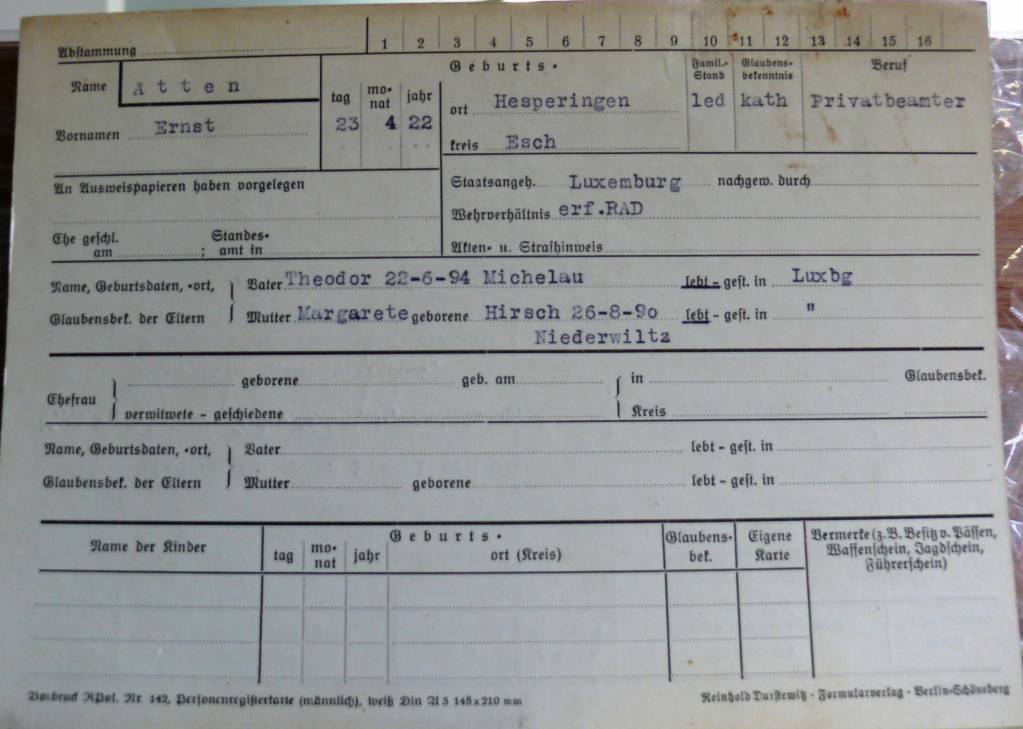 Abstammung 1 2 3 4 5 6 7 8 9 10 11 12 13 14 15 16
Name Atten
Vornamen Ernst
Geburts-
tag monat jahr
23 4 22
ort Hesperingen
kreis Esch
Famil.-Stand
led
Glaubensbekenntnis
kath
Beruf
Privatbeamter
An Ausweispapieren haben vorgelegen
Staatsangeh. Luxemburg nachgew. durch
Wehrverhältnis erf.RAD
Ehe geschl. am ; Standesamt in
Akten- u. Strafhinweis
Name, Geburtsdaten, -ort,
Glaubensbek. der Eltern
Vater Theodor 22-6-94 Michelau lebt - gest. in Luxbg
Mutter Margarete geborene Hirsch 26-8-90 lebt - gest. in "
Niederwiltz
Ehefrau
geborene geb. am in Glaubensbek.
verwitwete - geschiedene Kreis
Name, Geburtsdaten, -ort,
Glaubensbek. der Eltern
Vater lebt - gest. in
Mutter geborene lebt - gest. in
Name der Kinder
Geburts-
tag monat jahr ort (Kreis)
Glaubensbek.
Eigene Karte
Vermerke (z.B. Besitz v. Pässen,
Waffenschein, Jagdschein,
Führerschein)
Vordruck RPol. Nr. 142, Personenregisterkarte (männlich), weiß Din A 5 148 x 210 mm
Reinhold Durstewitz · Formularverlag · Berlin-Schöneberg